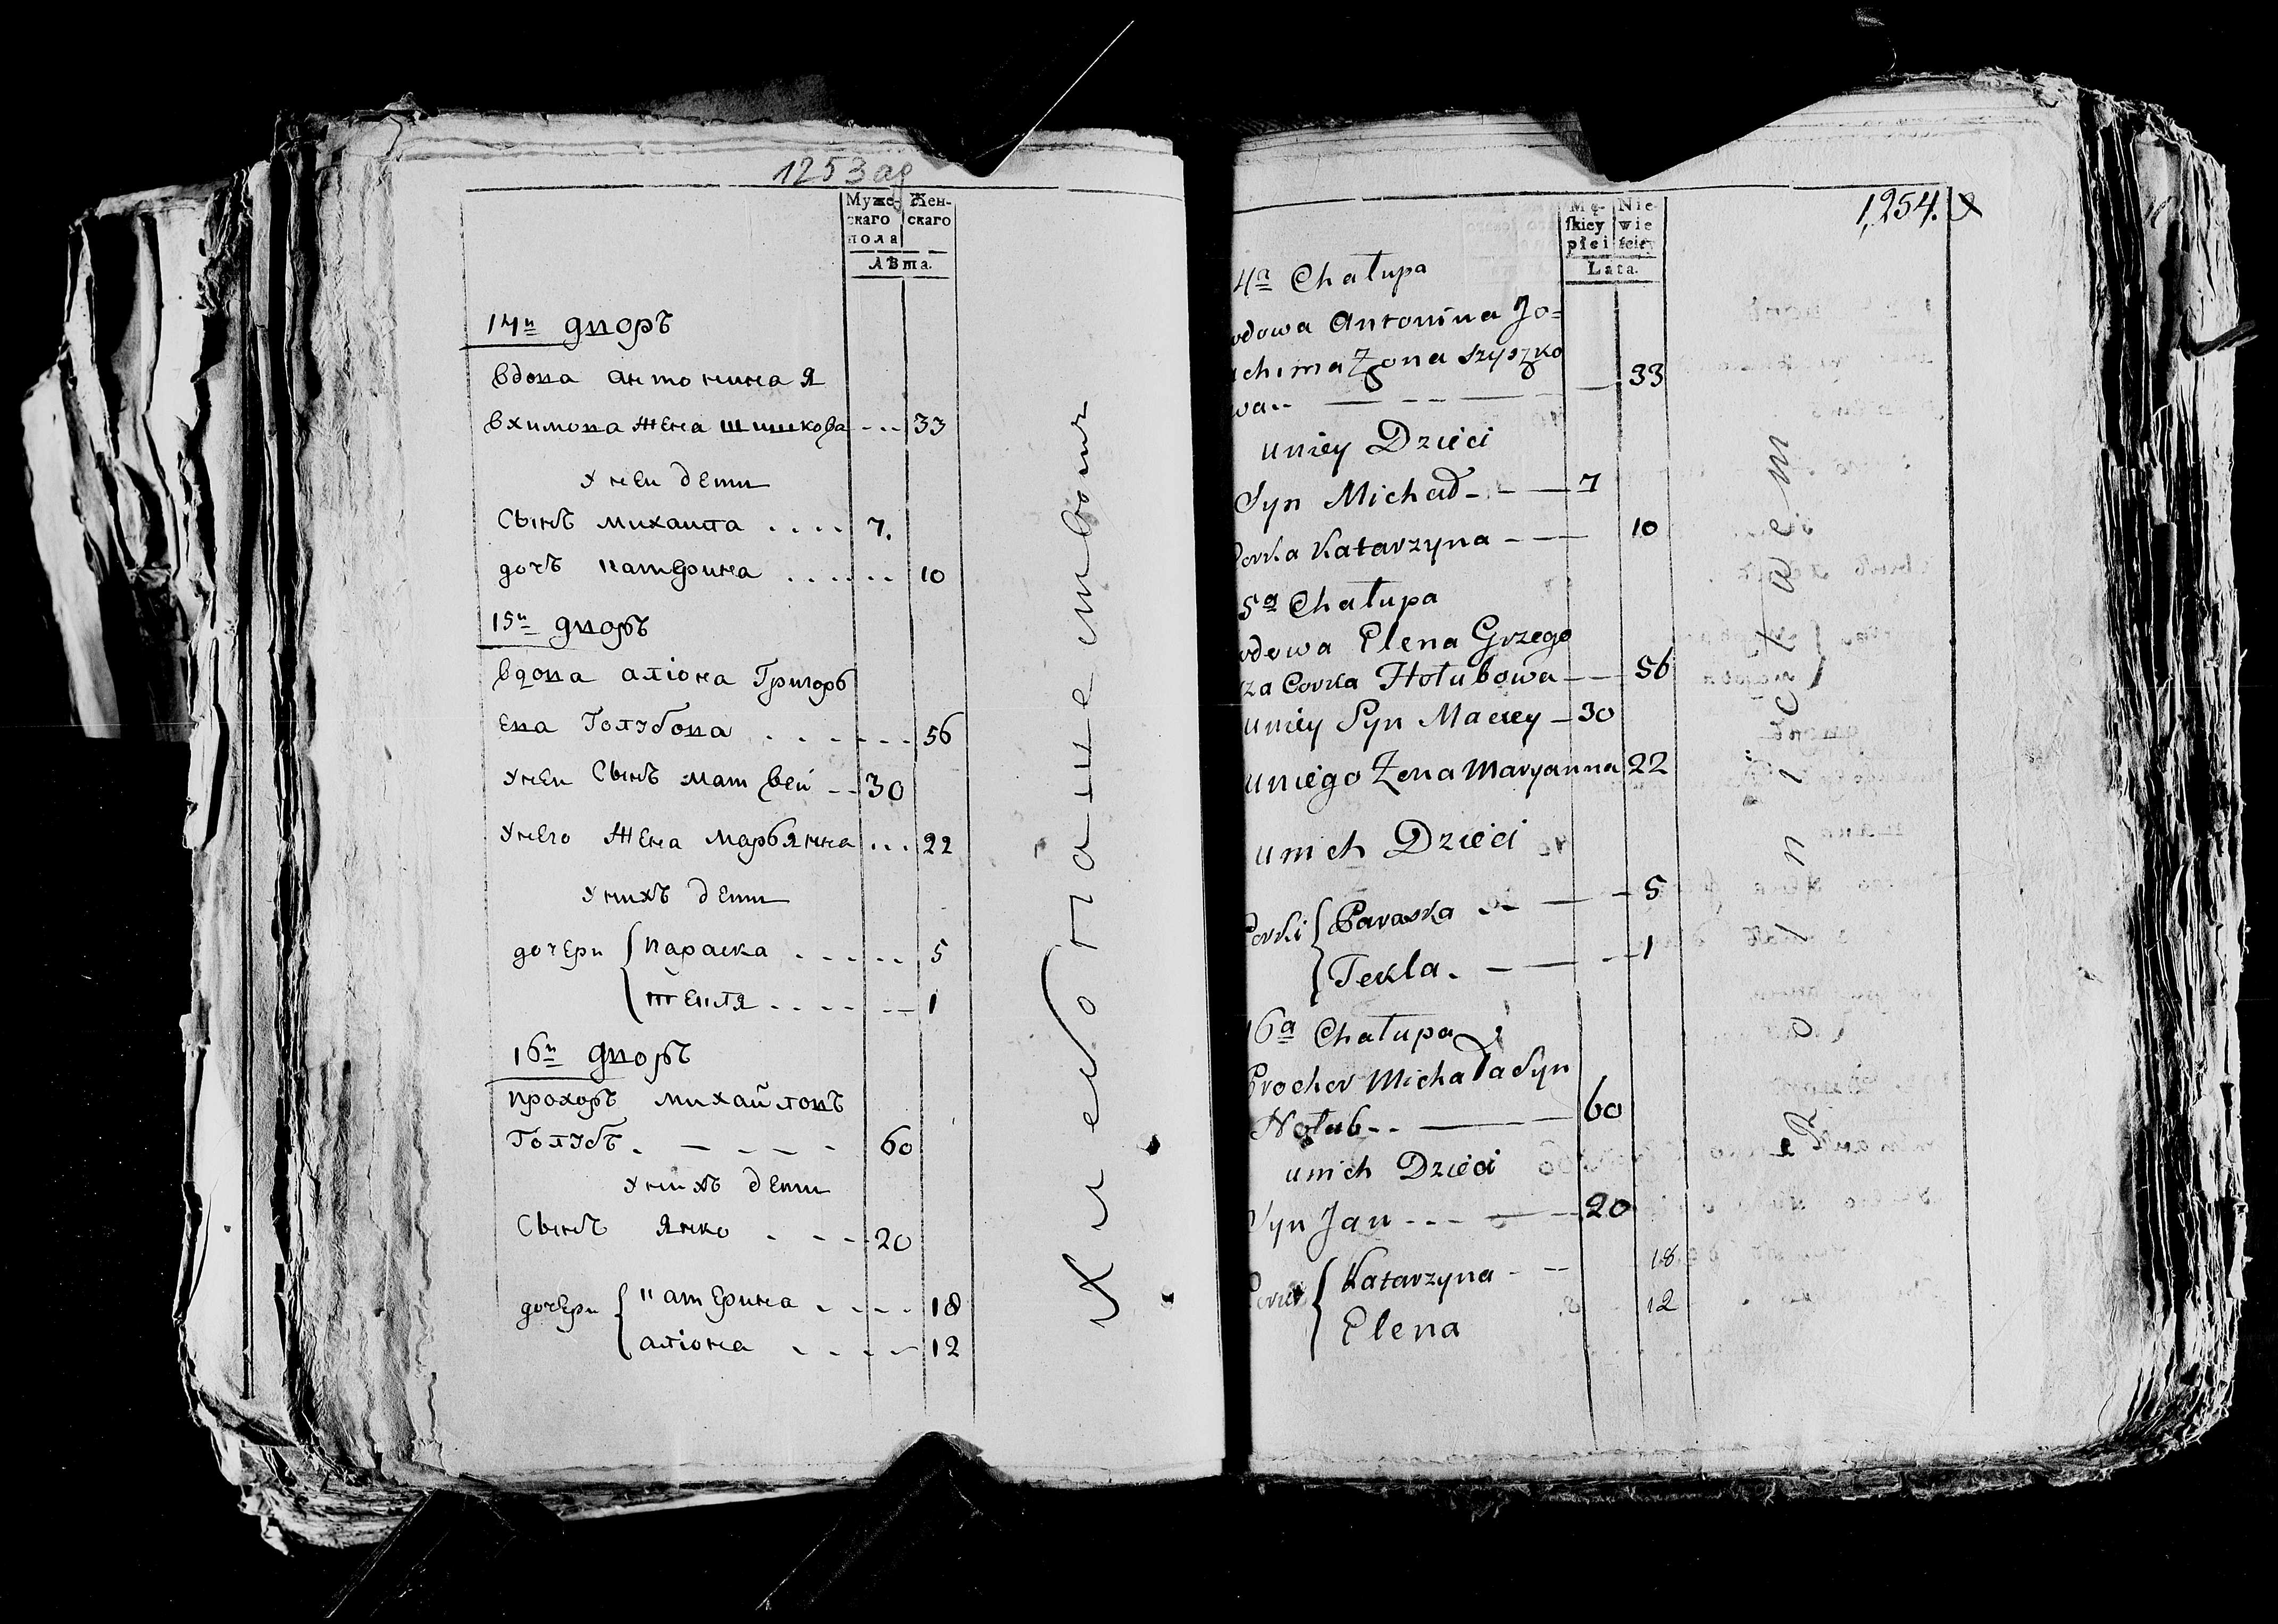 1253 аδ
Муже- Жен-
скаго скаго
пола
Лѣта.
14й дворъ
вдова антонина я
вхимова жена шишкова - - - 33
у неи дети
Сынъ михаила . . . . 7.
дочъ катерина . . . . . . 10
15й дворъ
вдова алiона Григорь
ева Голубова . . . . - - - 56
унеи Сынъ матвеи - - 30
унего жена марьянна . . . 22
унихъ дети
дочери { параска . . . . . . 5
текля . . . . - - 1
16й дворъ
прохоръ михайловъ
Голубъ. — - — - 60
унихъ дети
Сынъ янко . - - - 20
дочери { катерина . . - - . 18
алiона . . . - - 12
Хлебопашествомъ
1254.
Mę- Nie-
skiey wie
płci ściey
Lata.
4a Chałupa
dowa Antonina Jo=
achima Zona szyszko
wa.. — — — — 33
uniey Dzieci
Syn Michał - - — 7
Corka Katarzyna - — — 10
5a Chałupa
dowa Elena Grzego
rza Corka Hołubowa — — 56
uniey Syn Maciey — 30
uniego Zena Maryanna 22
unich Dzieci
Corki { Paraska - - — — 5
Tekla. - — - - 1
16a Chałupa
Prochor Michała Syn
Hołub - - — 60
unich Dzieci
Syn Jan - - - — 20
Corki { Katarzyna - - - 18
Elena 12
Rolnictwem